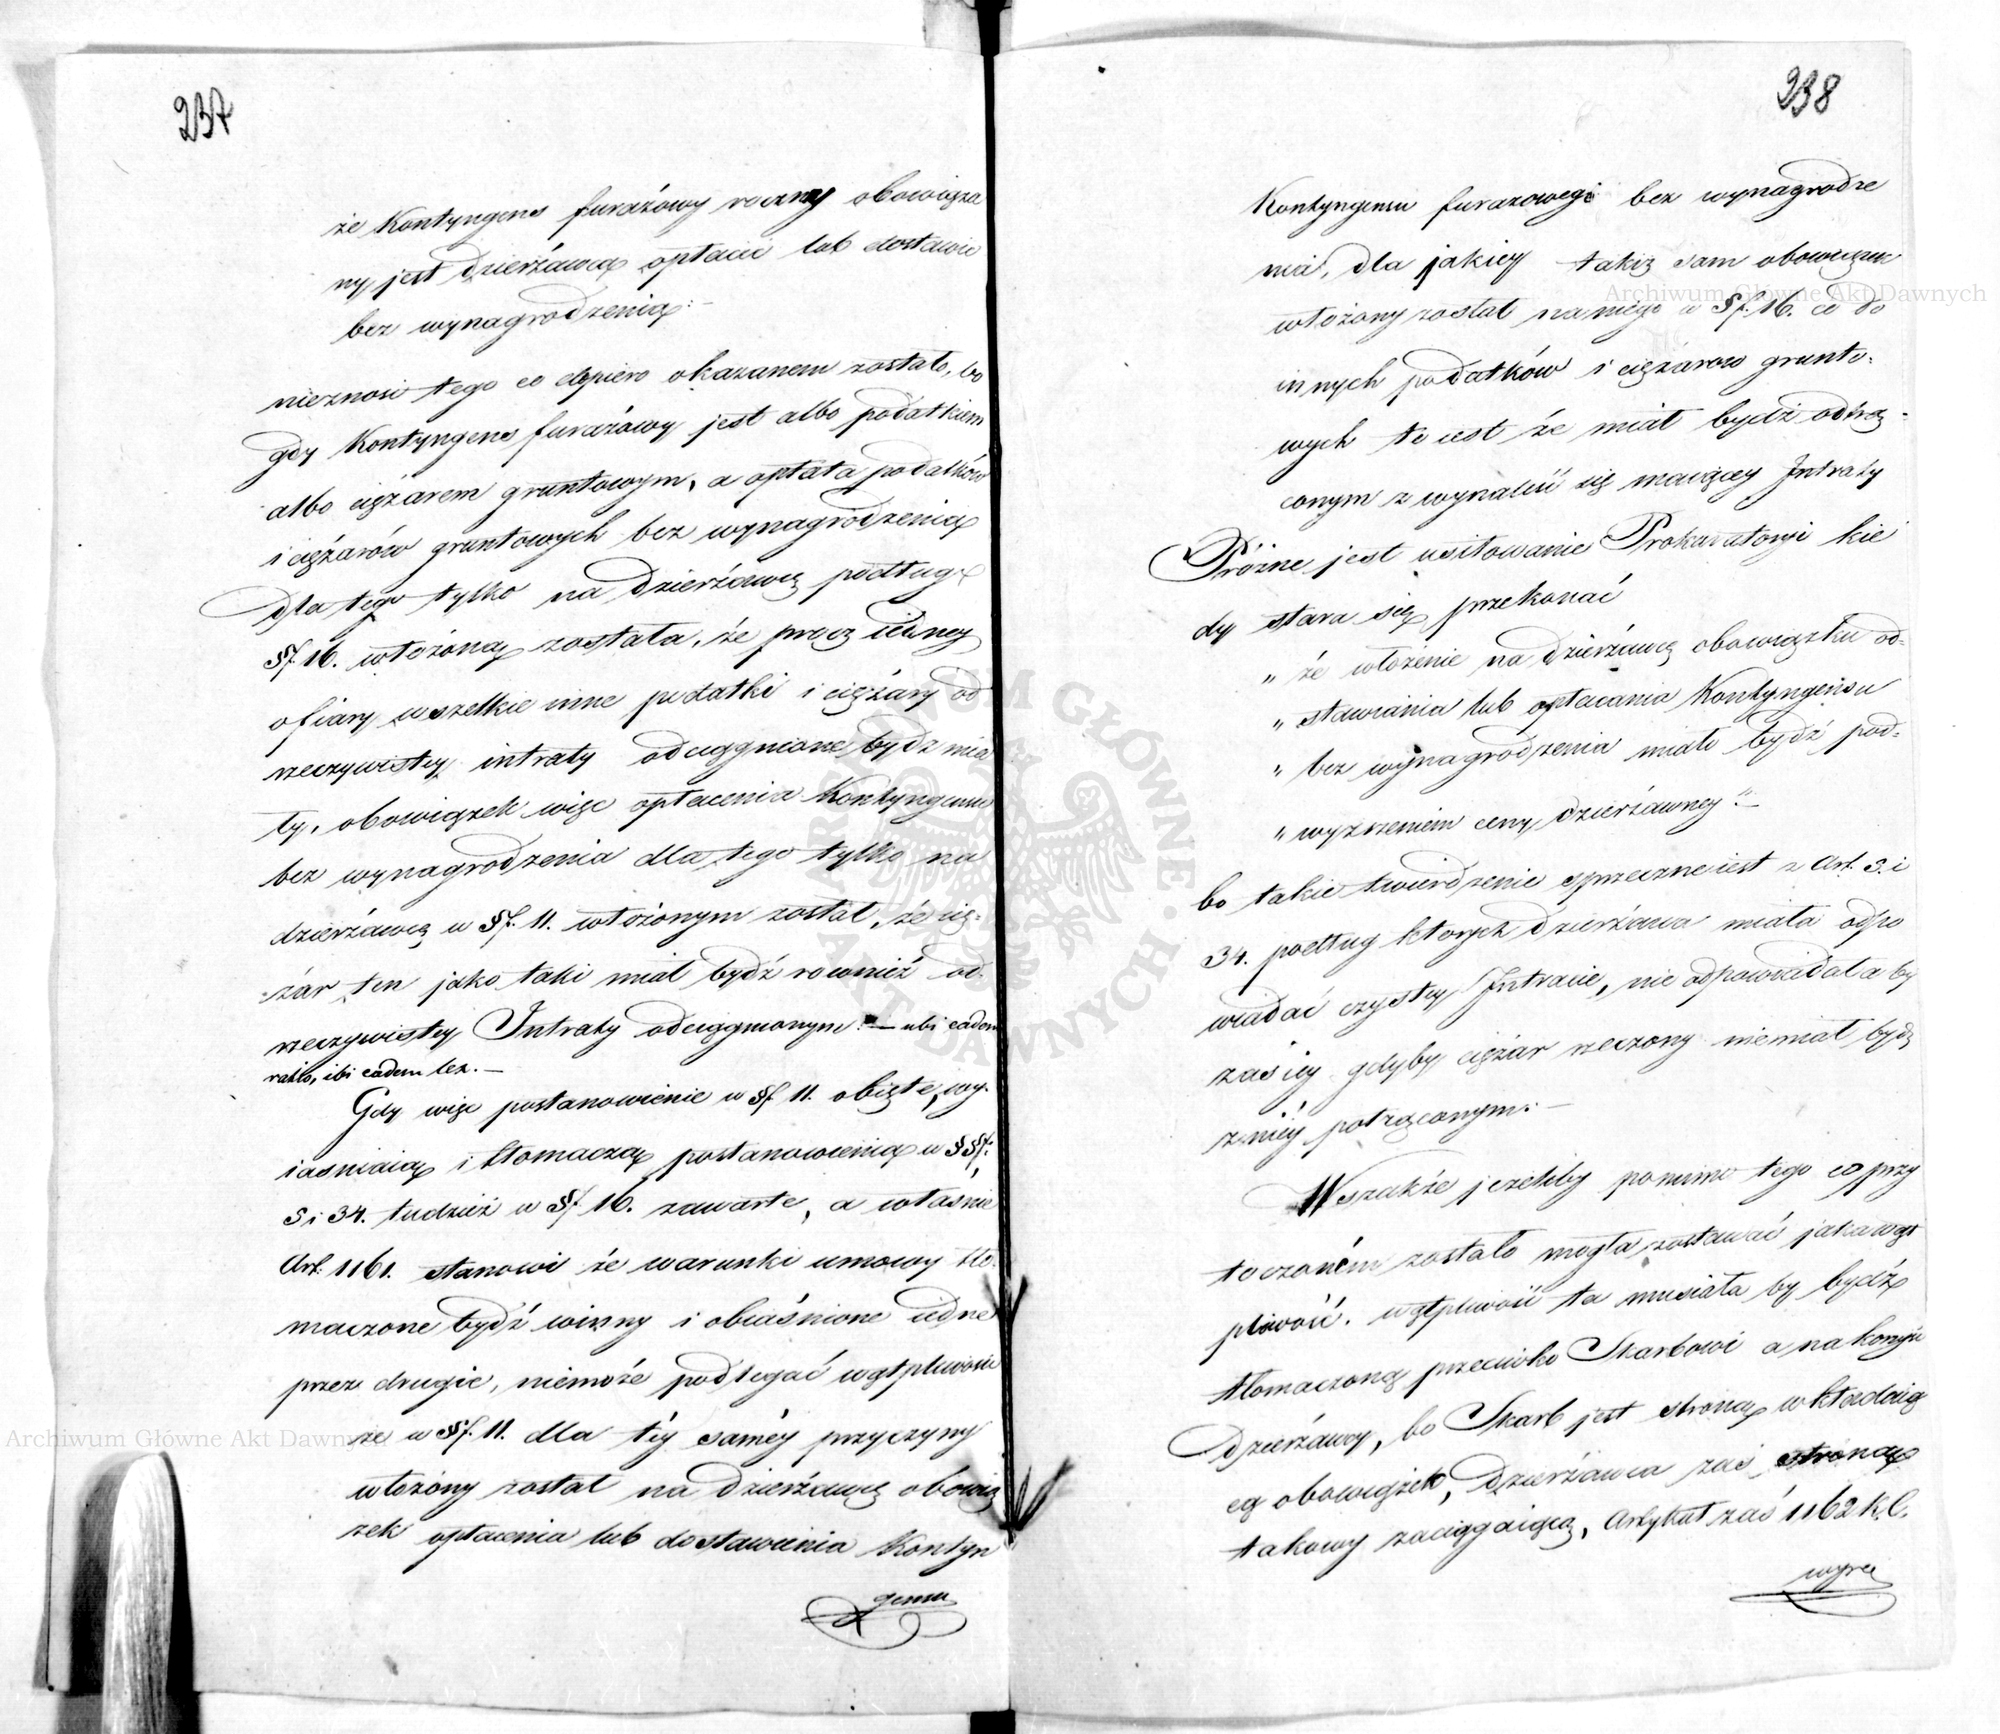 237
że Kontyngens furażowy roczny obowiąza
ny jest dzierżawcą opłacić lub dostawić
bez wynagrodzenia: —
nieznosi tego co dopiero okazanem zostało, bo
gdy Kontyngens furażowy jest albo podatkiem
albo ciężarem gruntowym, a opłata podatków
i ciężarów gruntowych bez wynagrodzenia
dla tego tylko na dzierżawcę podług
§f. 16. włożoną została, że procz iedney
ofiary wszelkie inne podatki i ciężary od
rzeczywistey intraty odciągnione bydz mia
ły, obowiązek więc opłacenia Kontyngensu
bez wynagrodzenia dla tego tylko na
dzierżawcę w §f. 11. włożonym został, że cię-
żar ten jako taki miał bydź rownież od
rzeczywistey Intraty odciągnionym. — ubi eadem
ratio, ibi eadem lex. —
Gdy więc postanowienie w §f 11. obięte, wy-
iaśniaią i tłomaczą postanowienia w §§f:
5 i 34. tudzież w §f 16. zawarte, a własnie
Art. 1161. stanowi że warunki umowy tło-
maczone bydź winny i obiaśnione iedne
przez drugie, niemoże podlegać wątpliwości
że w §f. 11. dla téy saméy przyczyny
włożony został na dzierżawcę obowią
zek opłacenia lub dostawienia Kontyn
gensu
238
Kontyngensu furazowego bez wynagrodze
nia, dla jakiey takiż sam obowiązek
włożony został na niego w §f. 16. co do
innych podatków i ciężarow grunto-
wych to iest że miał bydź odtrą-
conym z wynaleść się maiącey Intraty
Próżne jest usiłowanie Prokuratoryi kie
dy stara się przekonać
„ że włożenie na dzierżawcę obowiązku od-
„ stawiania lub opłacania Kontyngensu
„ bez wynagrodzenia miało bydź pod-
„ wyższeniem ceny dzierżawney“ —
bo takie twierdzenie sprzeczne iest z Art. 5. i
34. podług ktorych dzierżawa miała odpo
wiadać czystey Intracie, nie odpowiedała by
zaś iey gdyby ciężar rzeczony niemiał bydź
z niéy potrąconym. —
Wszakże jeżeliby pomimo tego co przy
toczoném zostało mogła zostawać jaka wąt
pliwość. wątpliwość ta musiała by bydź
tłomaczoną przeciwko Skarbowi a na korzyść
Dzierżawcy, bo Skarb jest stroną wkładaią
cą obowiązek, Dzierżawca zaś stroną
takowy zaciągaiącą, Artykuł zaś 1162 K. C.
wyra
Archiwum Główne Akt Dawnych
Archiwum Główne Akt Dawnych
ARCHIWUM GŁÓWNE • AKT DAWNYCH •